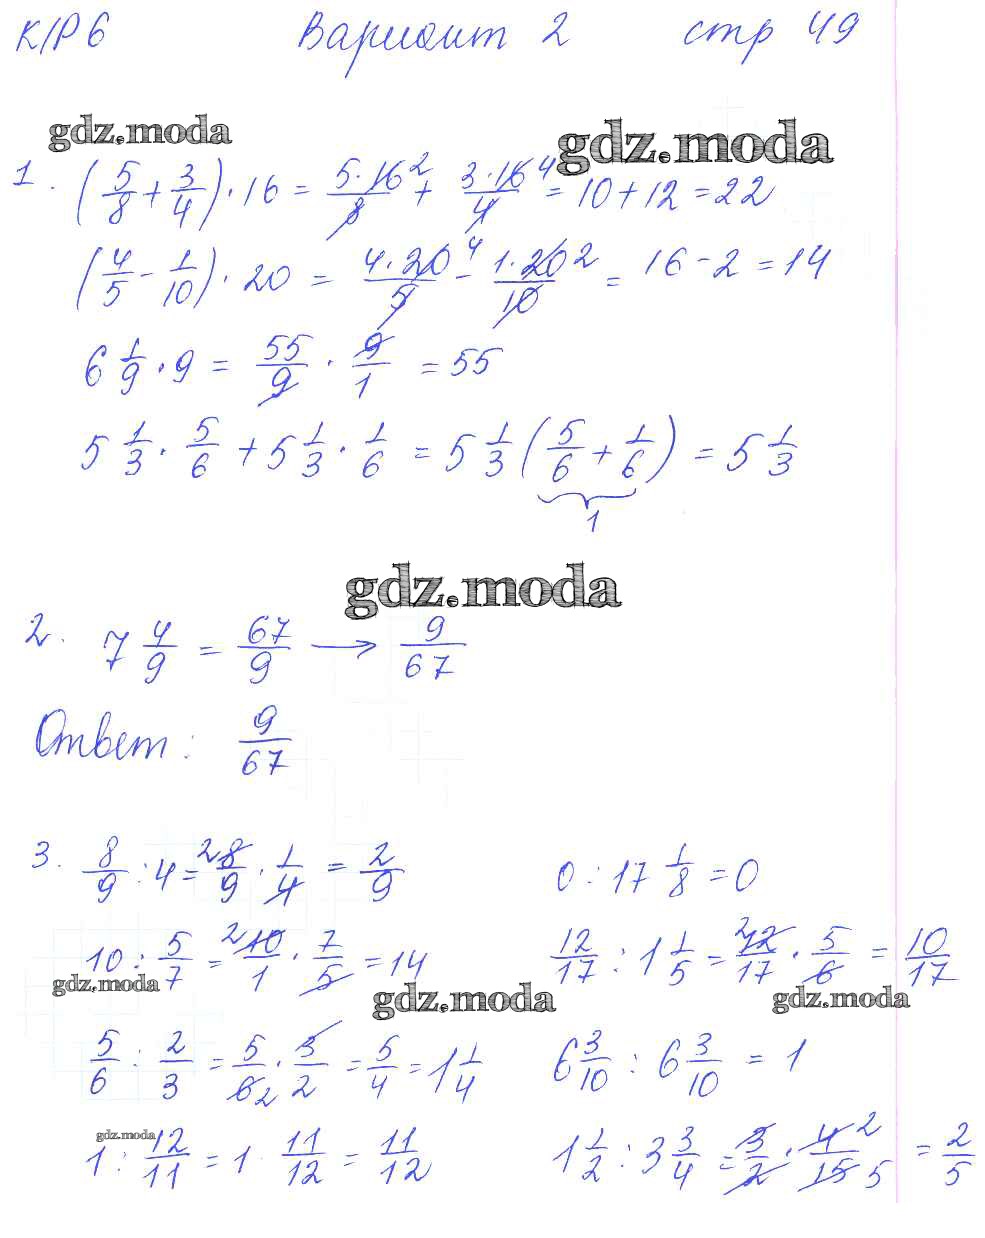 К/Р 6 Вариант 2 стр 49
gdz.moda gdz.moda
1. (5/8 + 3/4) · 16 = 5·16²/8 + 3·16⁴/4 = 10 + 12 = 22
(4/5 - 1/10) · 20 = 4·20⁴/5 - 1·20²/10 = 16 - 2 = 14
6 1/9 · 9 = 55/9 · 9/1 = 55
5 1/3 · 5/6 + 5 1/3 · 1/6 = 5 1/3 (5/6 + 1/6) = 5 1/3
1
gdz.moda
2. 7 4/9 = 67/9 → 9/67
Ответ: 9/67
3. 8/9 : 4 = ²8/9 · 1/4 = 2/9 0 : 17 1/8 = 0
10 : 5/7 = ²10/1 · 7/5 = 14 12/17 : 1 1/5 = ²12/17 · 5/6 = 10/17
gdz.moda gdz.moda gdz.moda
5/6 : 2/3 = 5/6₂ · 3/2 = 5/4 = 1 1/4 6 3/10 : 6 3/10 = 1
gdz.moda
1 : 12/11 = 1 · 11/12 = 11/12 1 1/2 : 3 3/4 = 3/2 · 4²/15₅ = 2/5